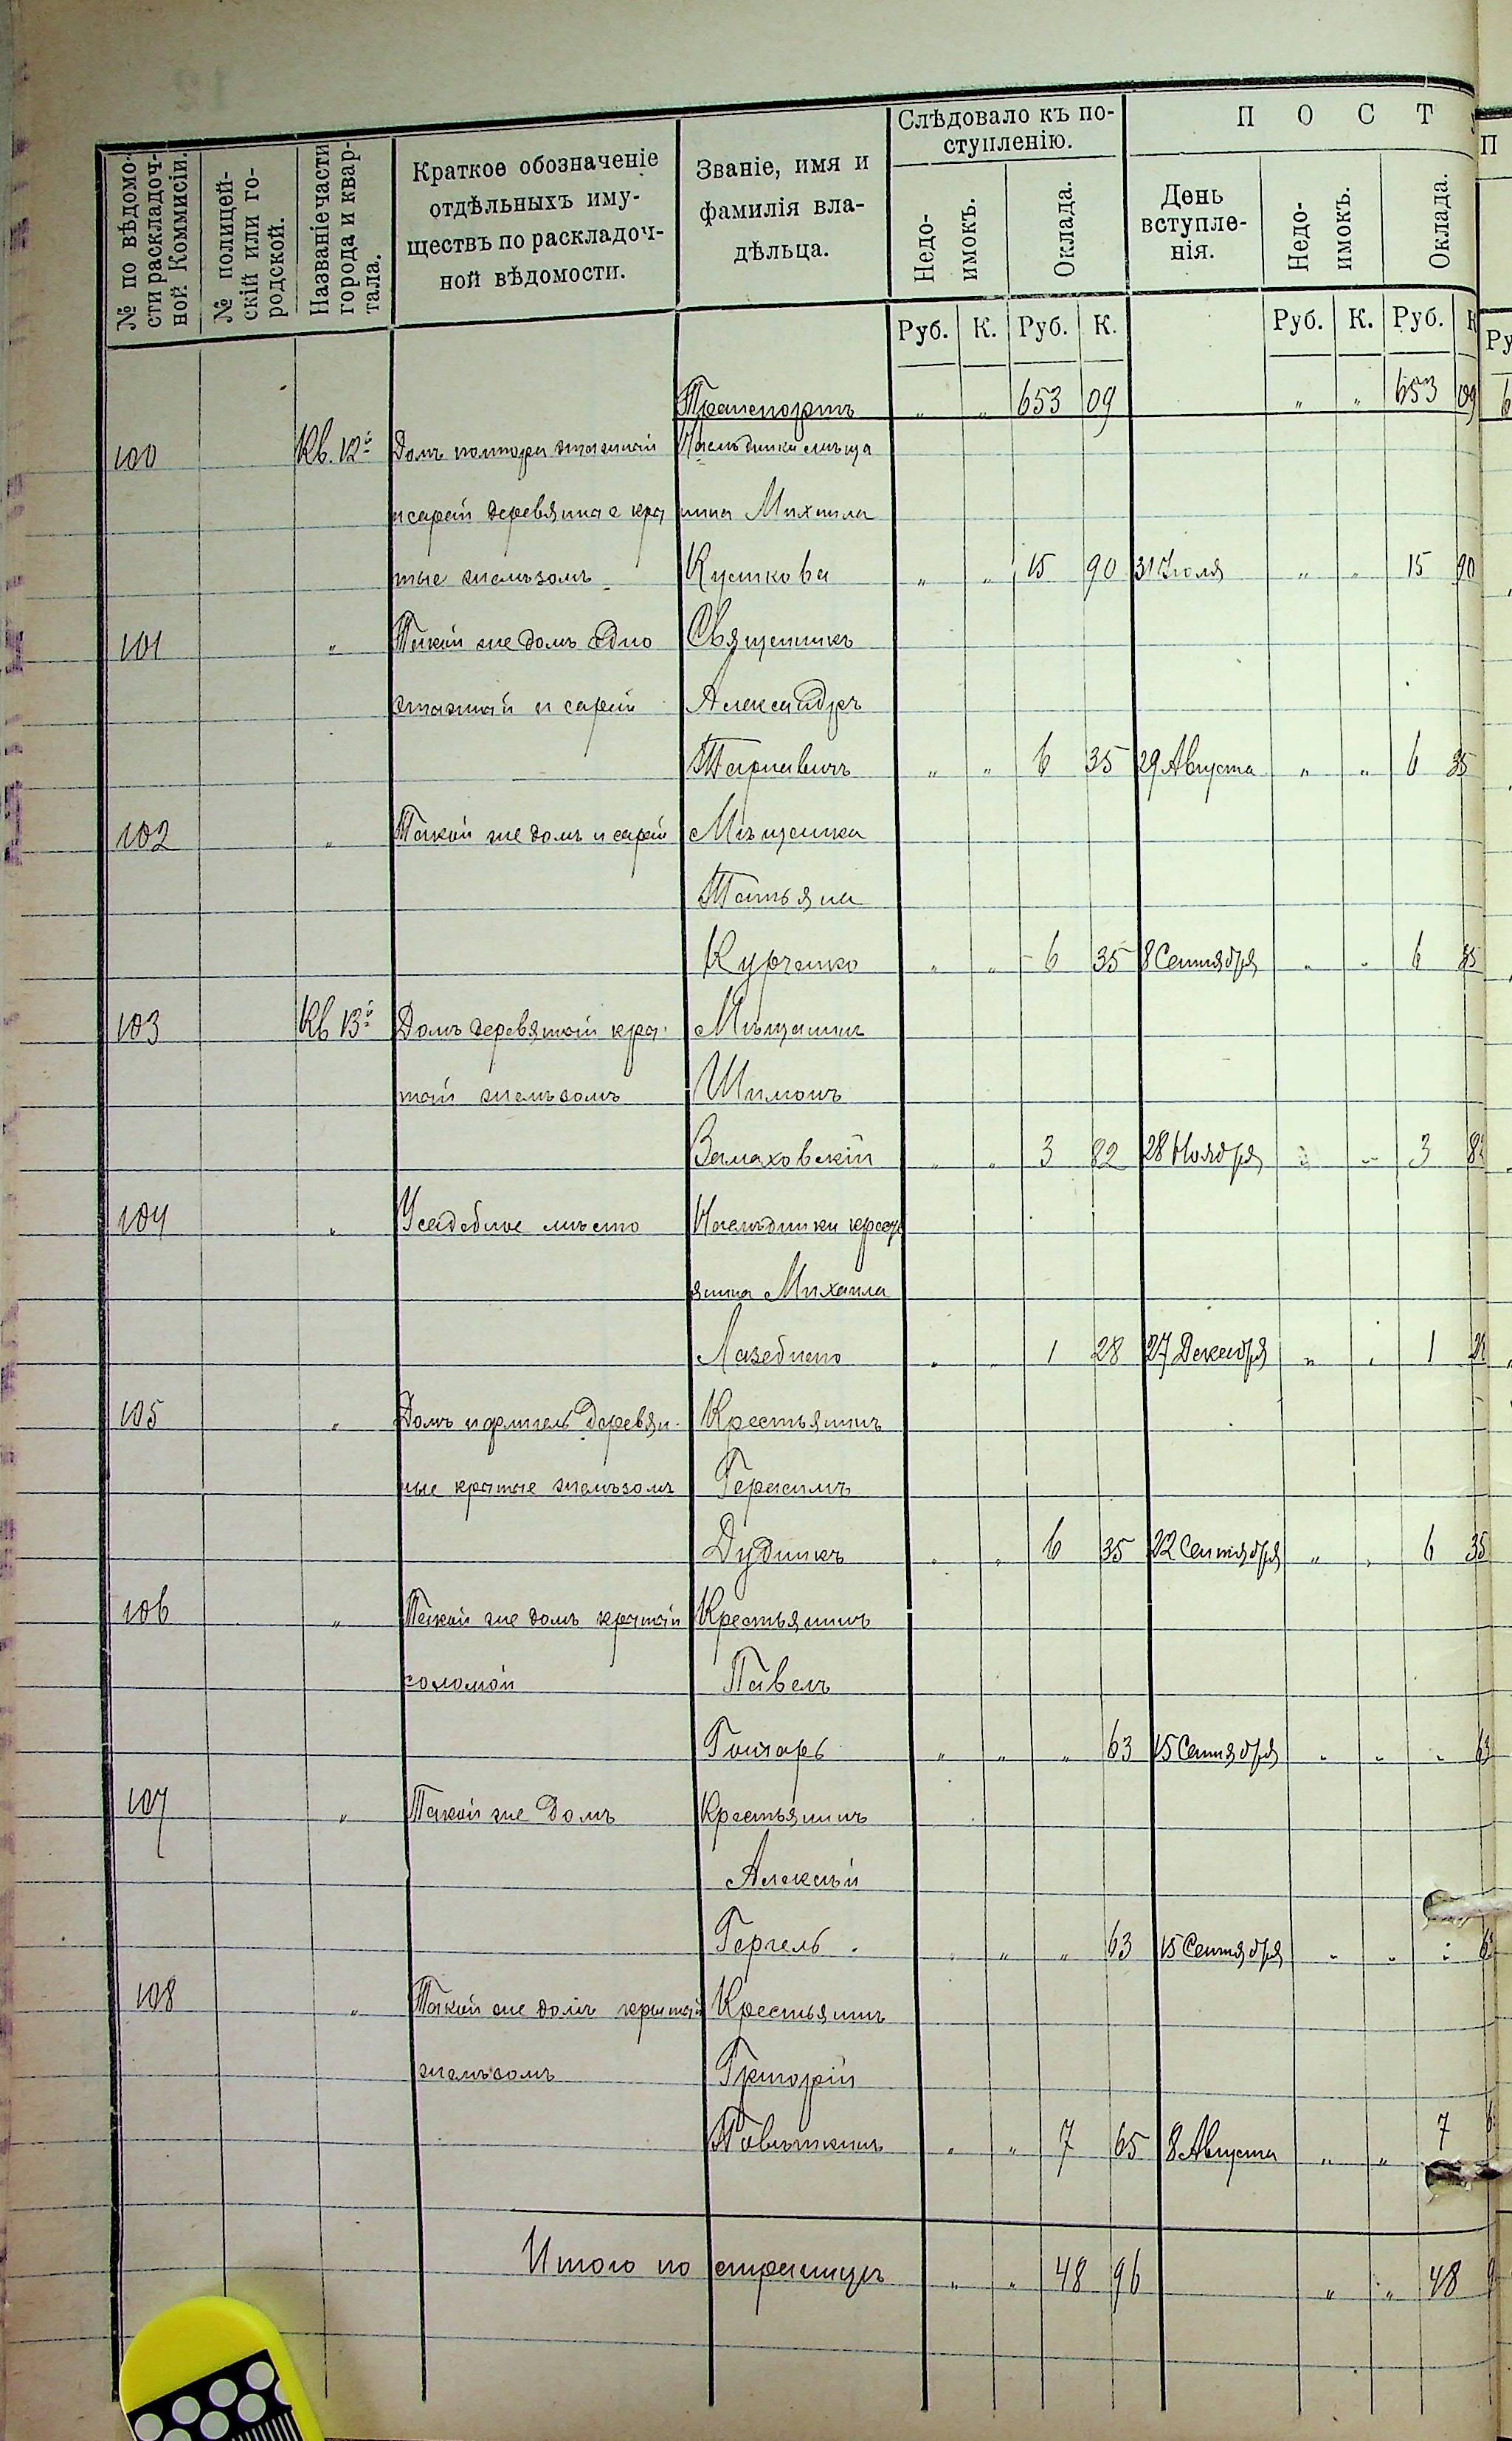 № по вѣдомо-
сти раскладоч-
ной Коммисіи.
№ полицей-
скій или го-
родской.
Названіе части
города и квар-
тала.
Краткое обозначеніе
отдѣльныхъ иму-
ществъ по раскладоч-
ной вѣдомости.
Званіе, имя и
фамилія вла-
дѣльца.
Слѣдовало къ по-
ступленію.
Недо-
имокъ.
Оклада.
П О С Т
День
вступле-
нія.
Недо-
имокъ.
Оклада.
Руб. К. Руб. К. Руб. К. Руб. К
Транспортъ „ „ 653 09 „ „ 653 09
100 Кв. 12й Домъ полтора этажный Наслѣдники мѣща
и сарай деревянные кры нина Михаила
тые желѣзомъ Куликова „ „ 15 90 31 Іюля „ „ 15 90
101 „ Такой же домъ одно Священникъ
этажный и сарай Александръ
Тарнавичъ „ „ 6 35 29 Августа „ „ 6 35
102 „ Такой же домъ и сарай Мѣщанка
Татьяна
Курченко „ „ 6 35 8 Сентября „ „ 6 35
103 Кв 13й Домъ деревяный кры- Мѣщанин
тый желѣзомъ Шимонъ
Валаховскій „ „ 3 82 28 Ноября „ „ 3 82
104 „ Усадебное мѣсто Наслѣдники крест
янина Михаила
Лазебнего „ „ 1 28 27 Декабря „ „ 1 28
105 „ Домъ и флигель деревян- Крестьянинъ
ные крытые желѣзомъ Герасимъ
Дудникъ „ „ 6 35 22 Сентября „ „ 6 35
106 „ Такой же домъ крытый Крестьянинъ
соломой Павелъ
Гончаръ „ „ „ 63 15 Сентября „ „ „ 63
107 „ Такой же домъ Крестьянинъ
Алексѣй
Гергель „ „ „ 63 15 Сентября „ „ „ 63
108 „ Такой же домъ крытый Крестьянинъ
желѣзомъ Григорій
„ „ 7 65 8 Августа „ „ 7 6
Итого по страницѣ „ „ 48 96 „ „ 48 9